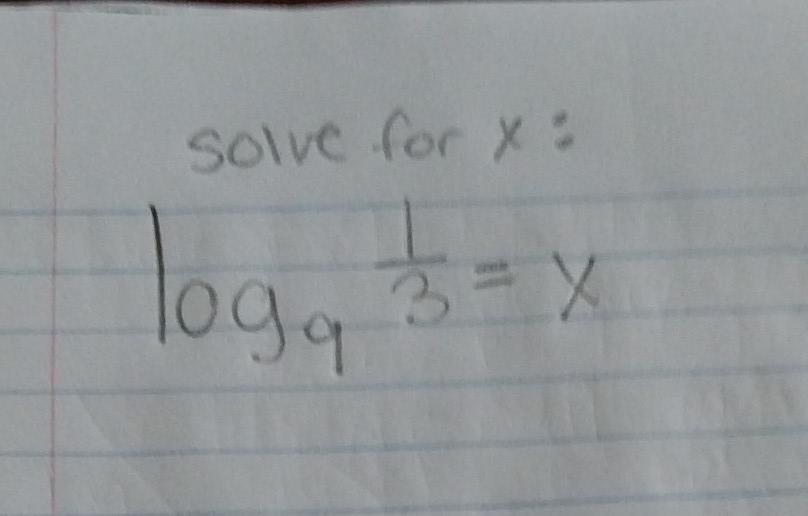 solve for x:
log₉ 1/3 = x